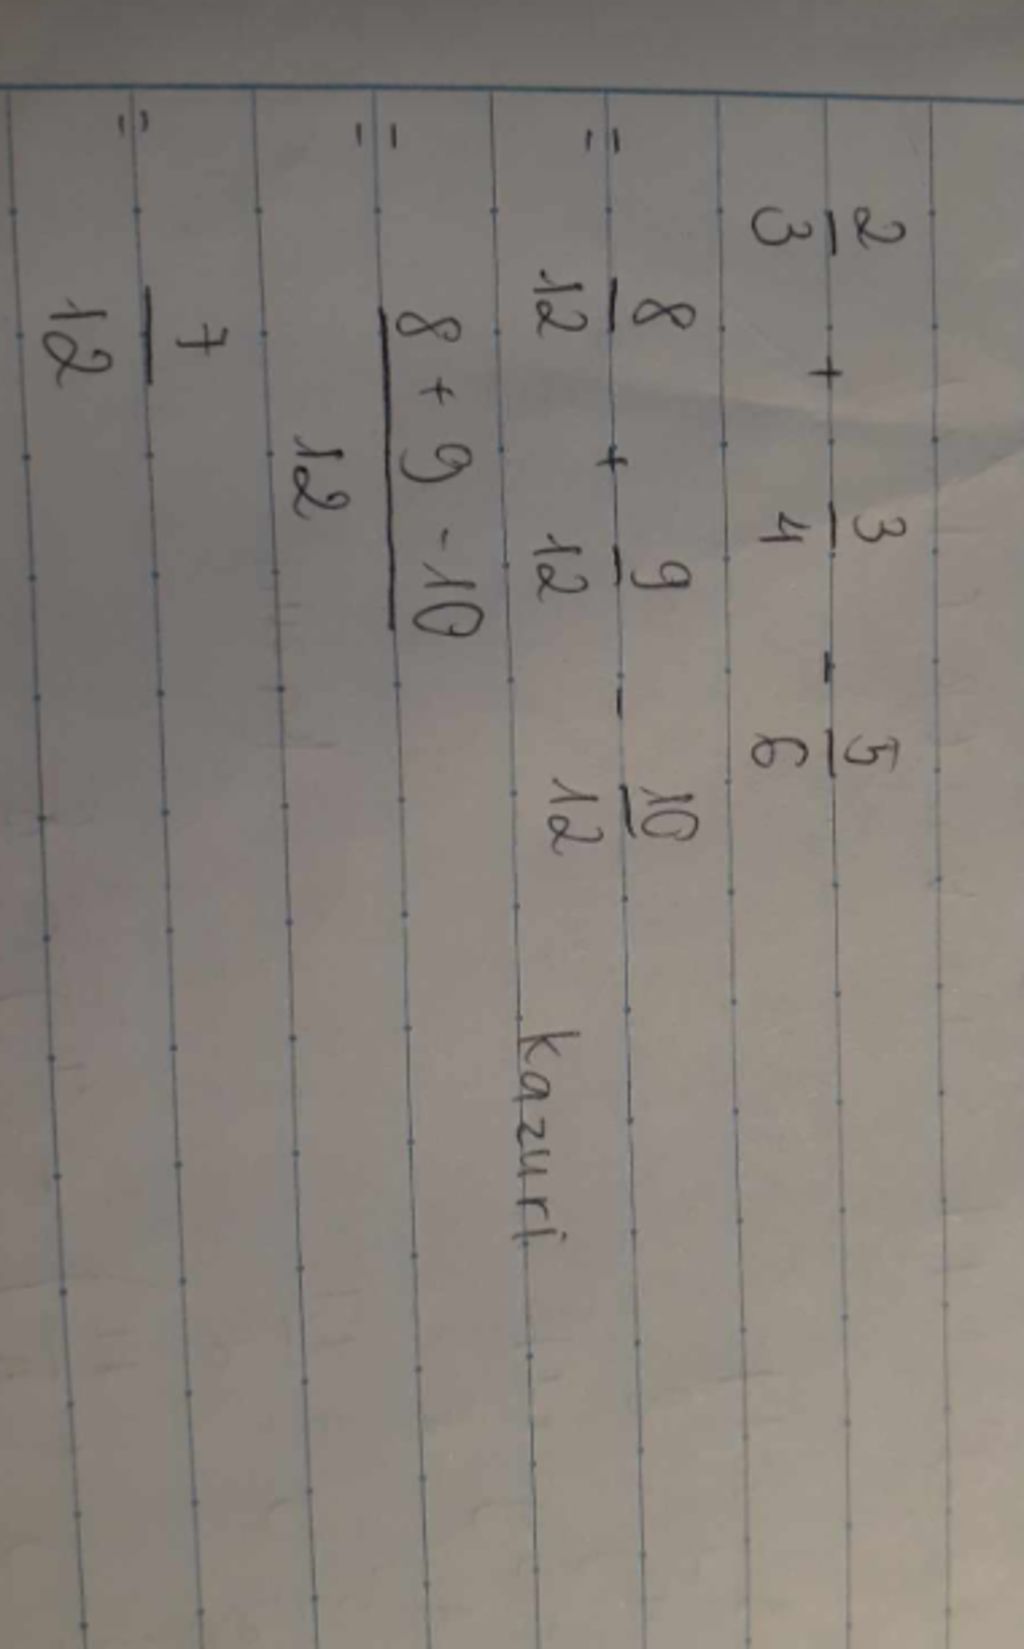 2/3 + 3/4 - 5/6
= 8/12 + 9/12 - 10/12
kazuri
= 8 + 9 - 10 / 12
= 7/12